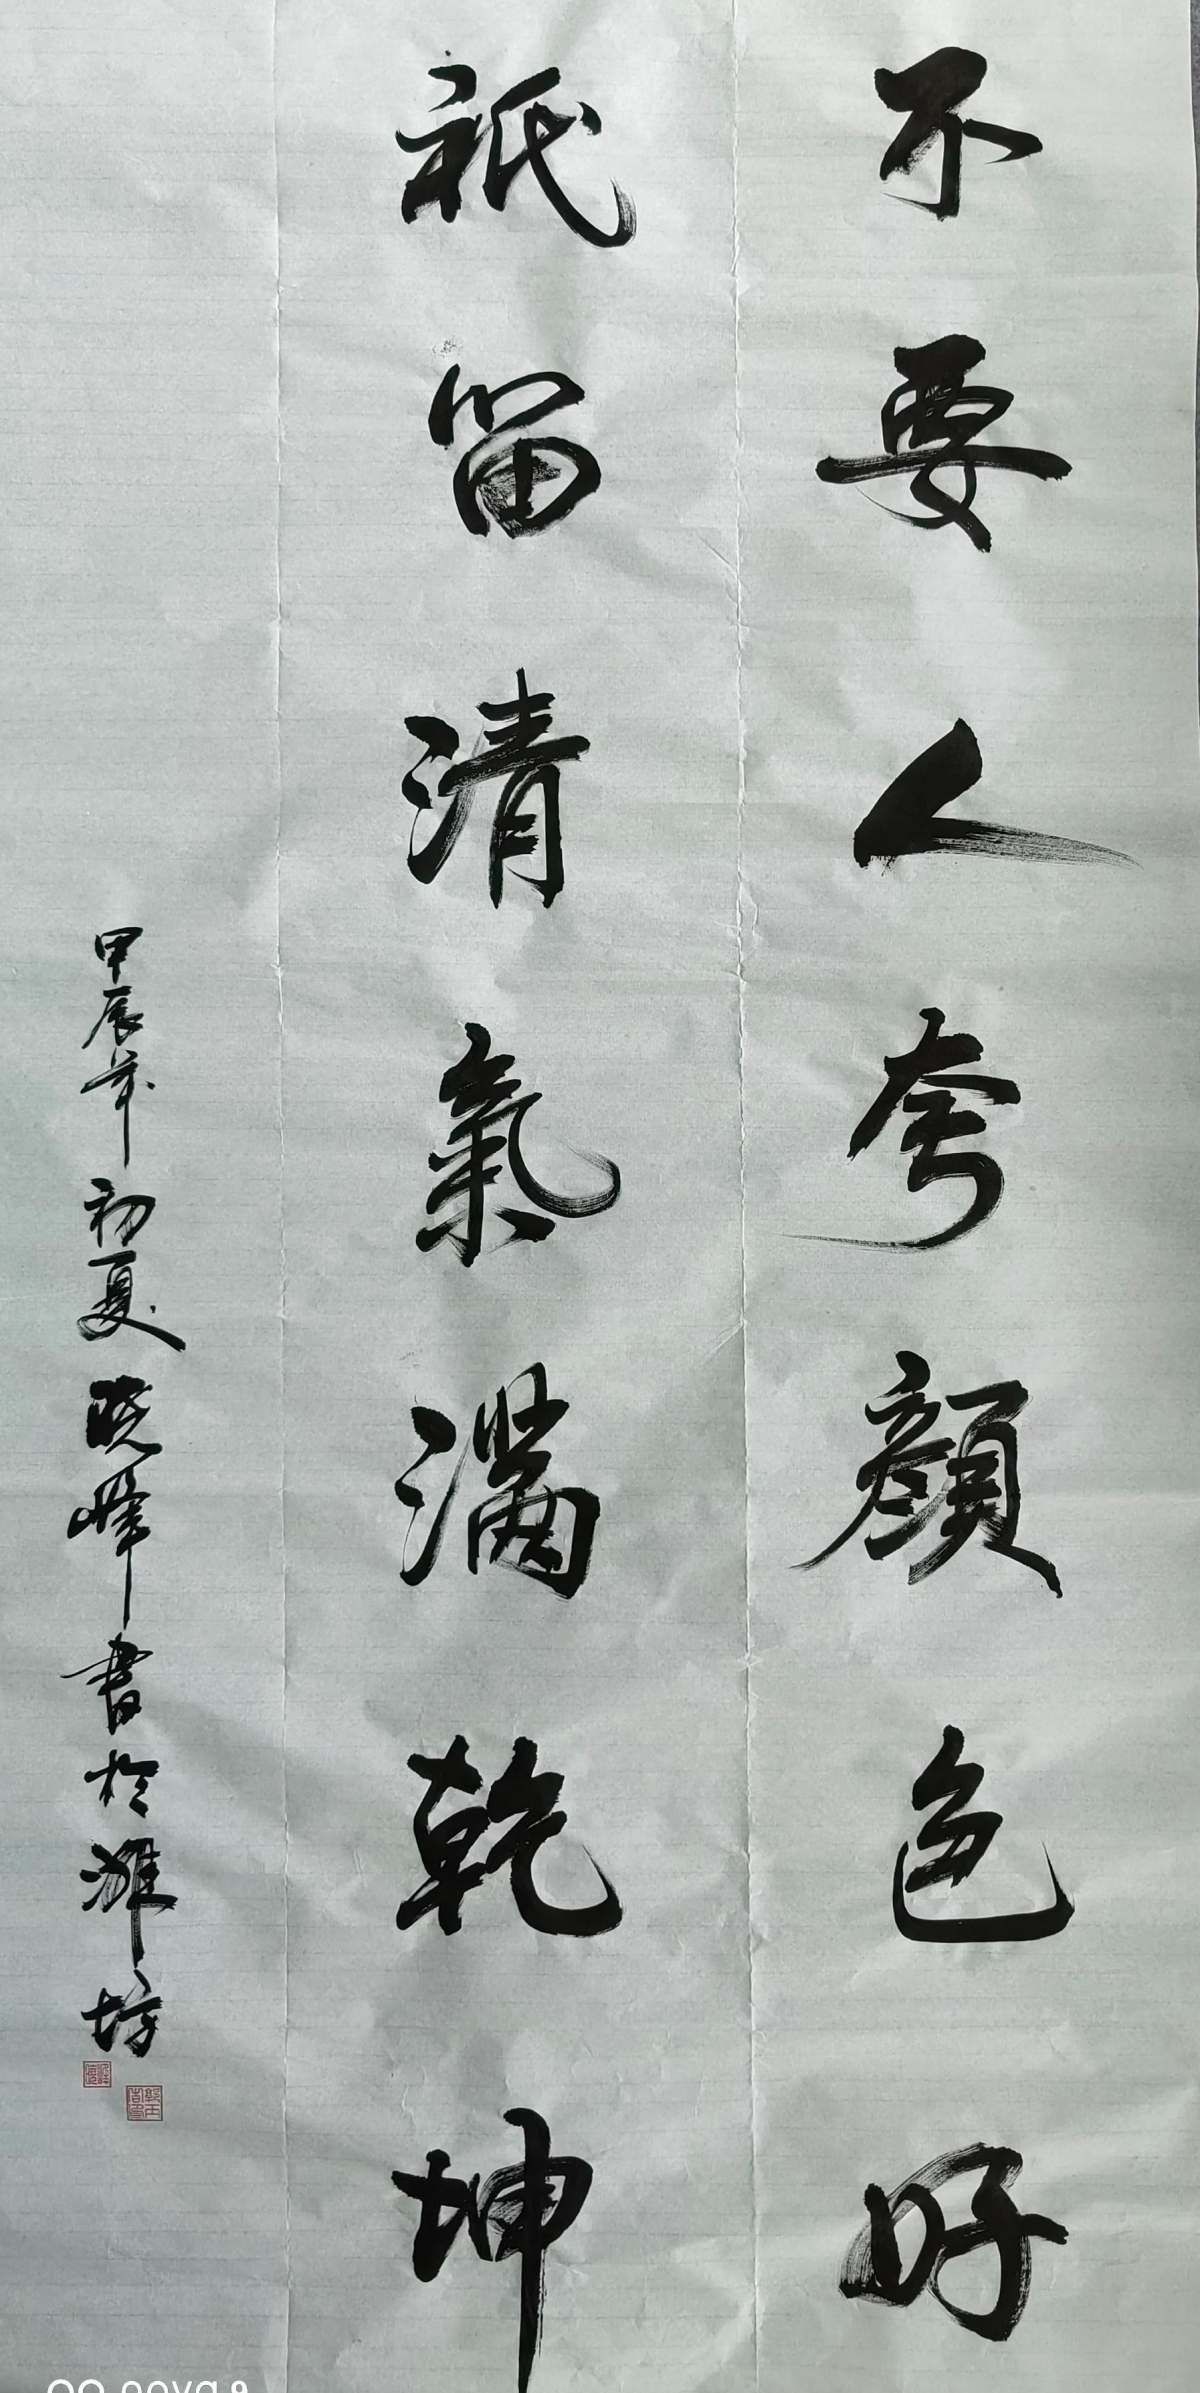 不要人夸顔色好
祇留清氣滿乾坤
甲辰年初夏晓峰書於潍坊
nova 9